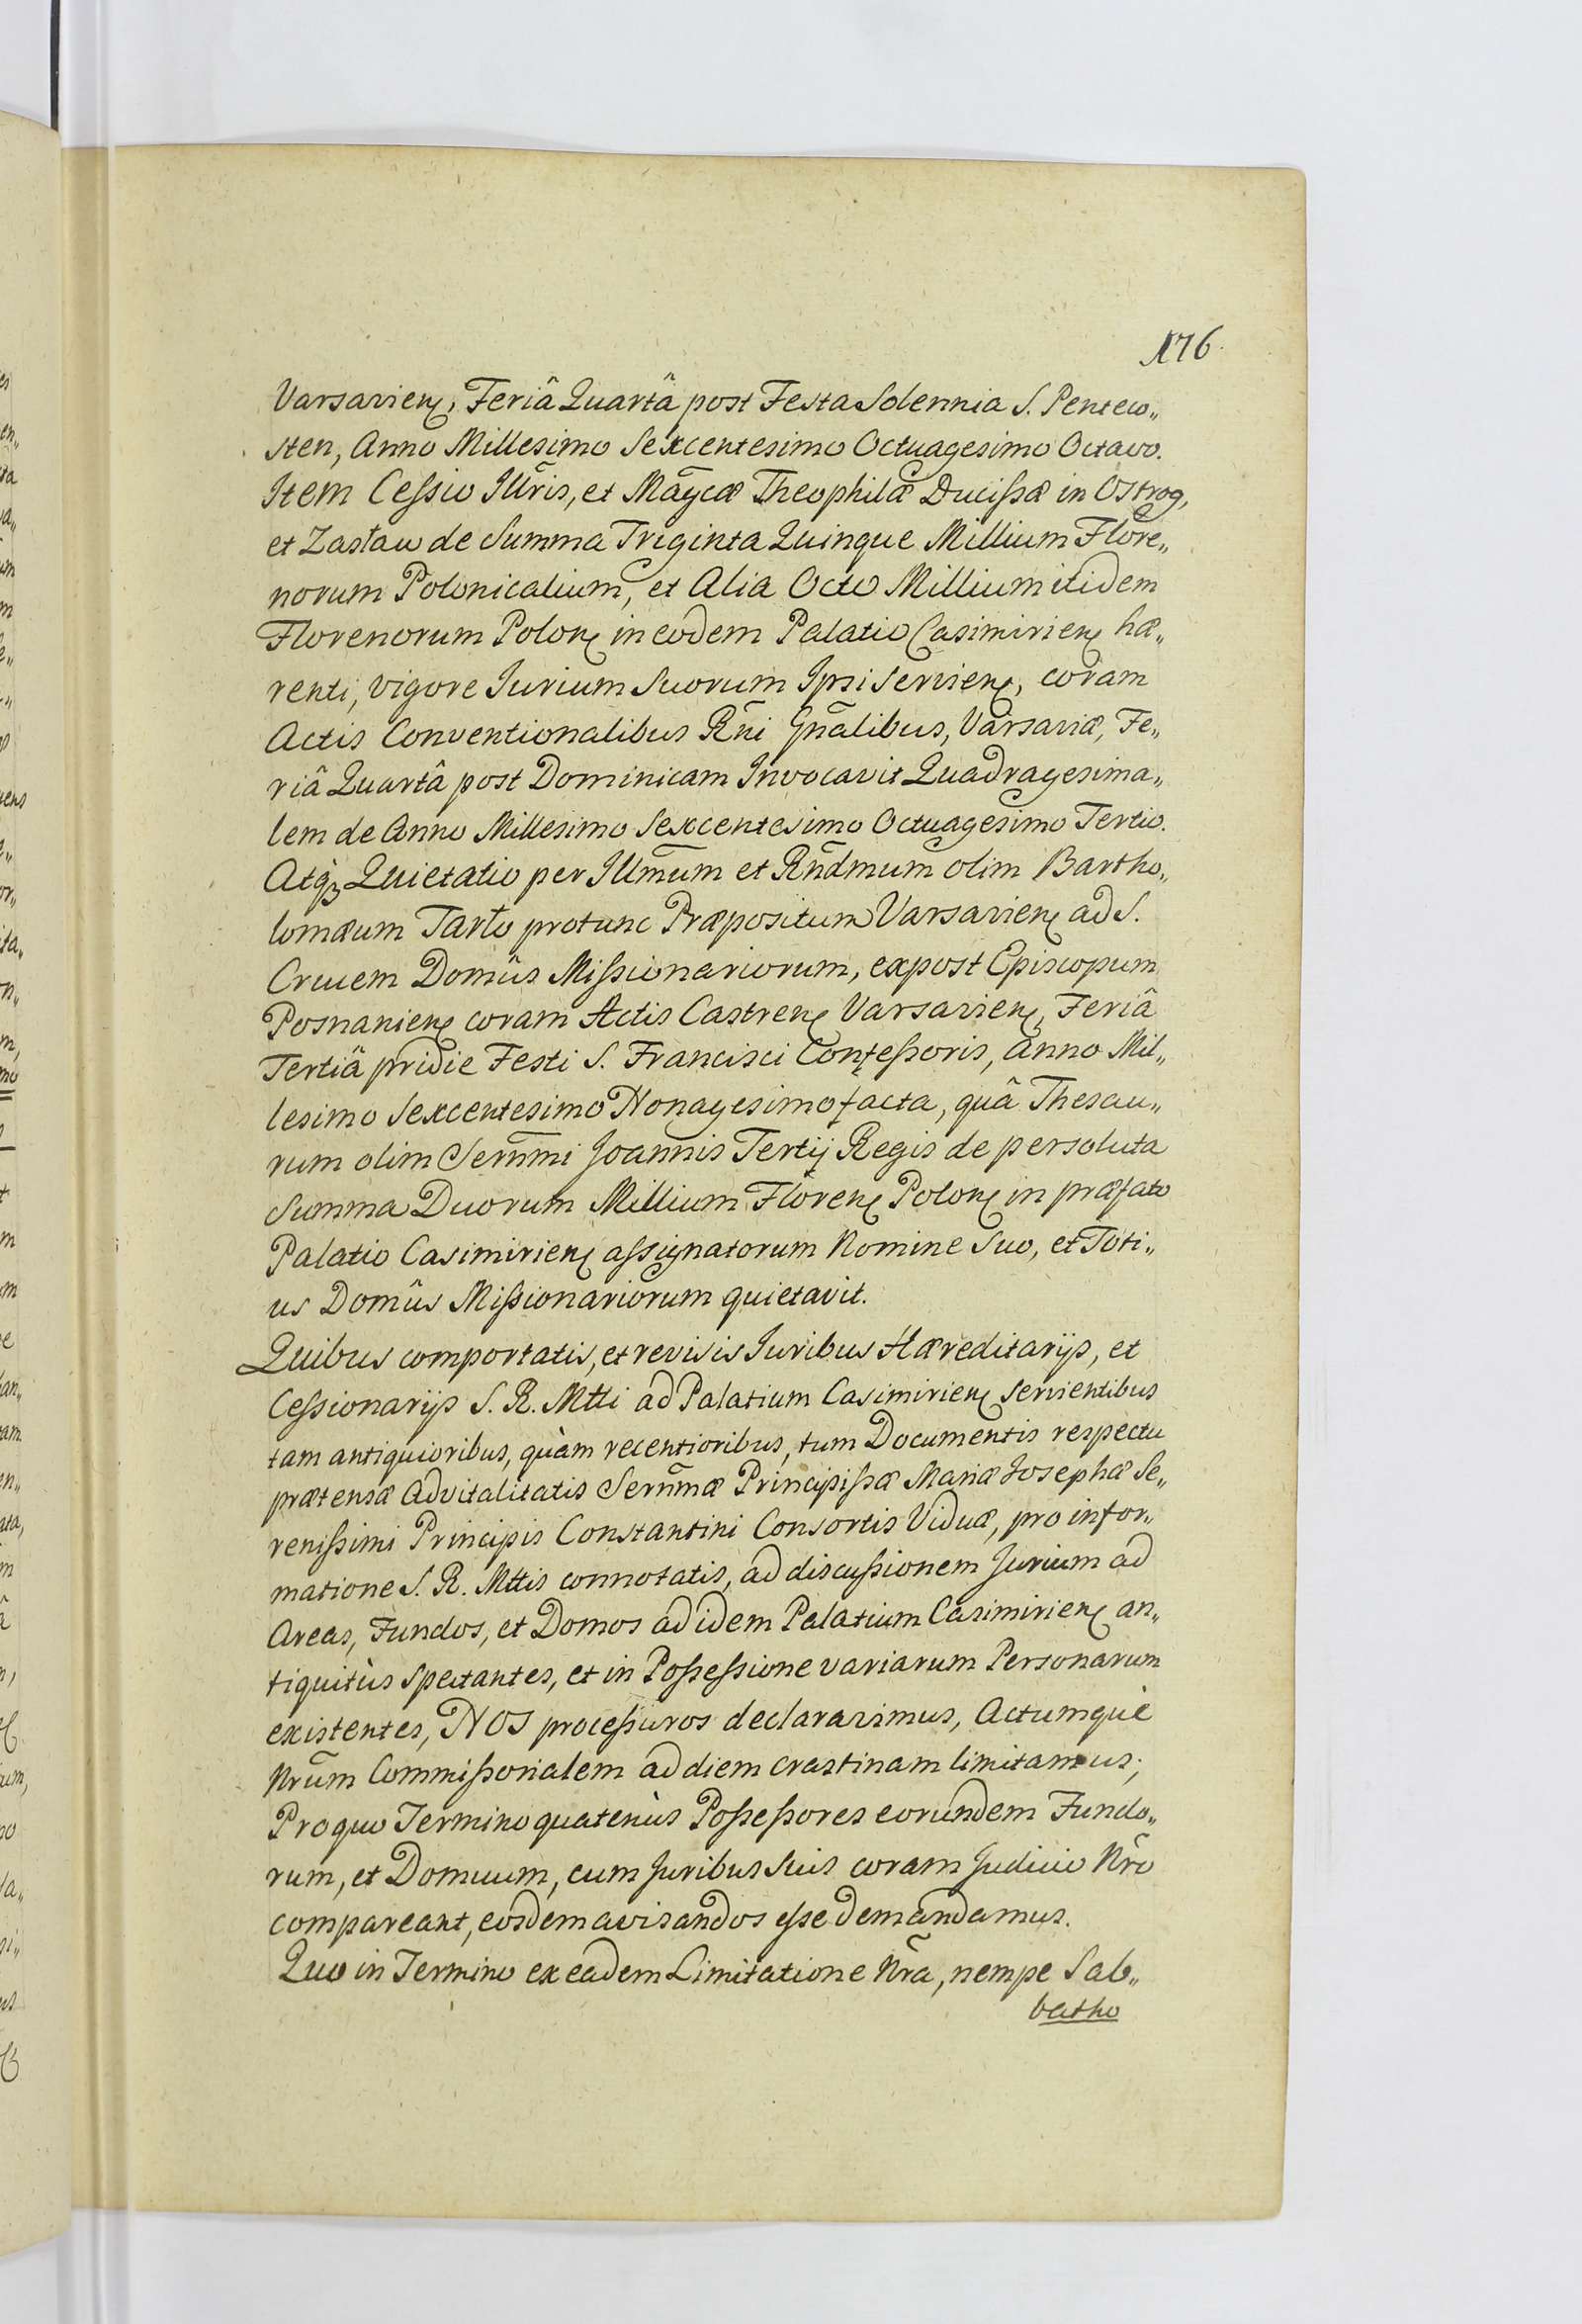 176.
Varsavien, Feriâ Quartâ post Festa Solennia S. Penteco„
sten, Anno Millesimo Sexcentesimo Octuagesimo Octavo.
Item Cessio Illris, et Magcæ Theophilæ Ducissæ in Ostrog,
et Zasław de Summa Triginta Quinque Millium Flore„
norum Polonicalium, et Alia Octo Millium itidem
Florenorum Polon in eodem Palatio Casimirien hæ„
renti, vigore Iurium Suorum Ipsi Servien, coram
Actis Conventionalibus Rni Gnalibus, Varsaviæ, Fe„
riâ Quartâ post Dominicam Invocavit Quadragesima„
lem de Anno Millesimo Sexcentesimo Octuagesimo Tertio.
Atq3 Quietatio per Illmum et Rndmum olim Bartho„
lomæum Tarło protunc Præpositum Varsavien ad S.
Crucem Domûs Missionariorum, expost Episcopum
Posnanien coram Actis Castren Varsavien, Feriâ
Tertiâ pridie Festi S. Francisci Confessoris, Anno Mil„
lesimo Sexcentesimo Nonagesimo facta, quâ Thesau„
rum olim Sernmi Joannis Tertij Regis de persoluta
Summa Duorum Millium Floren Polon in præfato
Palatio Casimirien assignatorum Nomine Suo, et Toti„
us Domûs Missionariorum quietavit.
Quibus comportatis, et revisis Iuribus Hæreditarijs, et
Cessionarijs S. R. Mtti ad Palatium Casimirien servientibus
tam antiquioribus, quàm recentioribus, tum Documentis respectu
prætensæ Advitalitatis Sernmæ Principissæ Mariæ Josephæ Se„
renissimi Principis Constantini Consortis Viduæ, pro infor„
matione S. R. Mttis connotatis, ad discussionem Jurium ad
Areas, Fundos, et Domos ad idem Palatium Casimirien an„
tiquitùs spectantes, et in Possessione variarum Personarum
existentes, NOS processuros declaravimus, Actumquè
Nrum Commissorialem ad diem crastinam limitamus;
Pro quo Termino quatenùs Possessores eorundem Fundo„
rum, et Domuum, cum Juribus Suis coram Judicio Nro
compareant, eosdem avisandos esse demandamus.
Quo in Termino ex eadem Limitatione Nra, nempe Sab„
batho